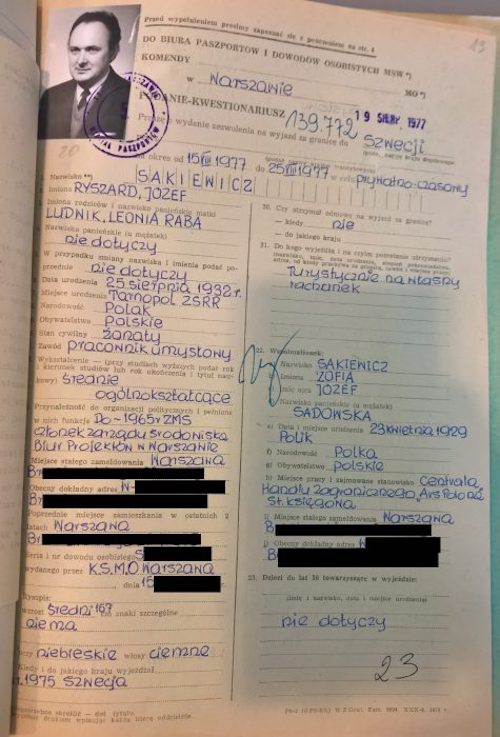 Przed wypełnieniem prosimy zapoznać się z pouczeniem na str. 4
13
DO BIURA PASZPORTÓW I DOWODÓW OSOBISTYCH MSW*)
KOMENDY
w Warszawie MO*)
PODANIE-KWESTIONARIUSZ
139.772
19 SIERP. 1977
Proszę o wydanie zezwolenia na wyjazd za granicę do Szwecji
na okres od 15 VIII 1977 do 25 VIII 1977 w celu prywatno-czasowy
20
Nazwisko **) SAKIEWICZ
Imiona RYSZARD, JÓZEF
Imiona rodziców i nazwisko panieńskie matki
LUDWIK, LEONIA RABA
Nazwisko panieńskie (u mężatki)
nie dotyczy
W przypadku zmiany nazwiska i imienia podać poprzednie nie dotyczy
Data urodzenia 25 sierpnia 1932 r.
Miejsce urodzenia Tarnopol ZSRR
Narodowość Polak
Obywatelstwo Polskie
Stan cywilny żonaty
Zawód pracownik umysłowy
Wykształcenie — (przy studiach wyższych podać rok
i kierunek studiów lub rok ukończenia i tytuł naukowy)
średnie
ogólnokształcące
Przynależność do organizacji politycznych i pełnione
w nich funkcje Do -1965r ZMS
członek zarządu środowiska
Biur Projektów w Warszawie
Miejsce stałego zameldowania Warszawa
Obecny dokładny adres W-
Poprzednie miejsce zamieszkania w ostatnich
latach Warszawa
Seria i nr dowodu osobistego
wydanego przez K.S.M.O Warszawa
, dnia 15
Rysopis:
wzrost średni 167 znaki szczególne
niema
oczy niebieskie włosy ciemne
Kiedy i do jakiego kraju wyjeżdżał
r. 1975 Szwecja
20. Czy otrzymał odmowę na wyjazd za granicę?
— kiedy nie
— do jakiego kraju
21. Do kogo wyjeżdża i na czyim pozostanie utrzymaniu?
Turystycznie na własny
rachunek
22. Współmałżonek:
Nazwisko SAKIEWICZ
Imiona ZOFIA
Imię ojca JÓZEF
Nazwisko panieńskie (u mężatki)
SADOWSKA
Data i miejsce urodzenia 23 kwietnia 1929
Polik
Narodowość Polka
Obywatelstwo polskie
Miejsce pracy i zajmowane stanowisko Centrala
Handlu Zagranicznego, Ars Polona
st. księgowa
Miejsce stałego zameldowania Warszawa
Obecny dokładny adres W
23. Dzieci do lat 16 towarzyszące w wyjeździe:
(imię i nazwisko, data i miejsce urodzenia)
nie dotyczy
23